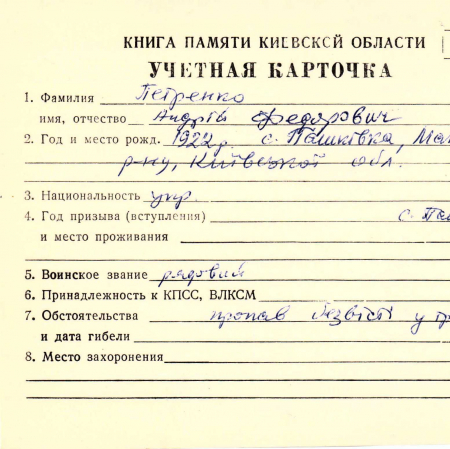 КНИГА ПАМЯТИ КИЕВСКОЙ ОБЛАСТИ
УЧЕТНАЯ КАРТОЧКА
1. Фамилия Петренко
имя, отчество Андрій Федорович
2. Год и место рожд. 1922 р. с. Пашківка, Мак
р-ну, Київської обл.
3. Национальность укр.
4. Год призыва (вступления) с. Паш
и место проживания
5. Воинское звание рядовий
6. Принадлежность к КПСС, ВЛКСМ
7. Обстоятельства пропав безвісті у
и дата гибели
8. Место захоронения